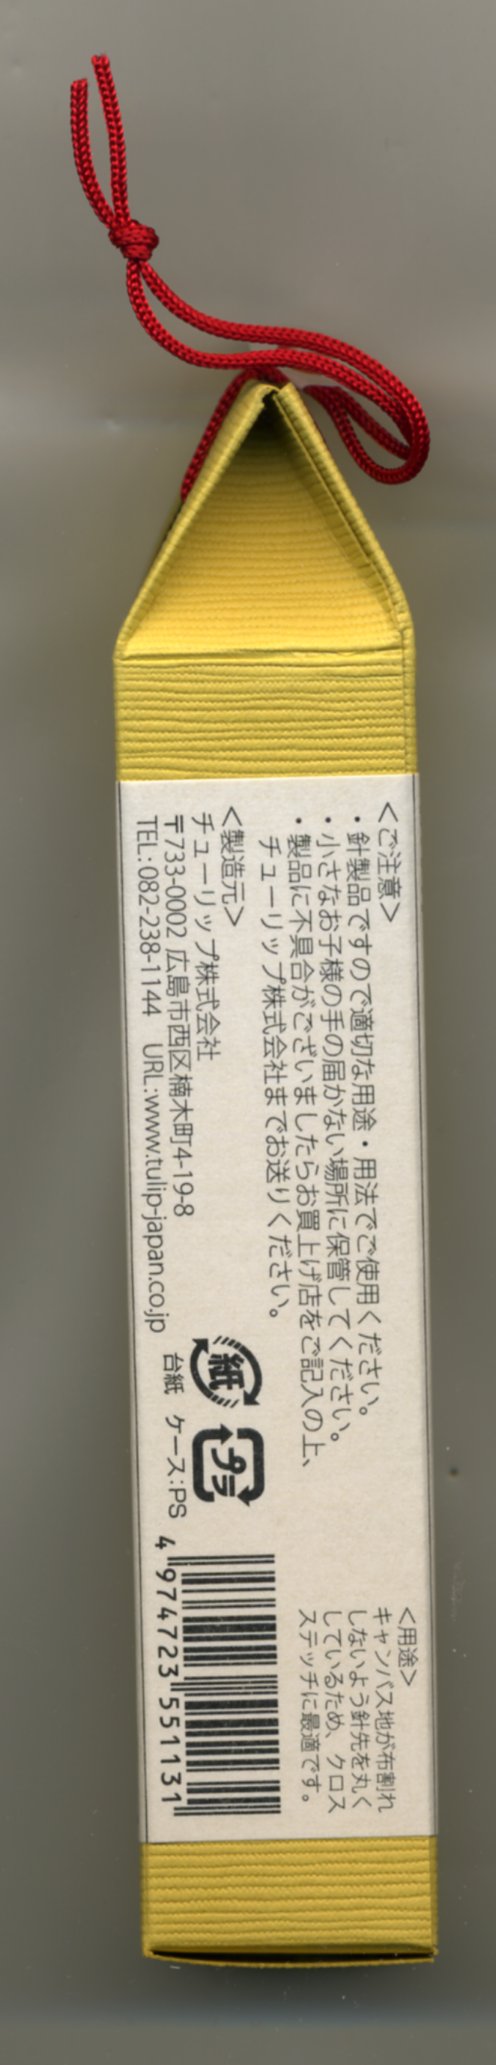 <ご注意>
・針製品ですので適切な用途・用法でご使用ください。
・小さなお子様の手の届かない場所に保管してください。
・製品に不具合がございましたらお買上げ店をご記入の上、
チューリップ株式会社までお送りください。
<製造元>
チューリップ株式会社
〒733-0002 広島市西区楠木町4-19-8
TEL:082-238-1144 URL:www.tulip-japan.co.jp
紙
プラ
台紙 ケース:PS
<用途>
キャンバス地が布割れ
しないよう針先を丸く
しているため、クロス
ステッチに最適です。
4 974723 551131